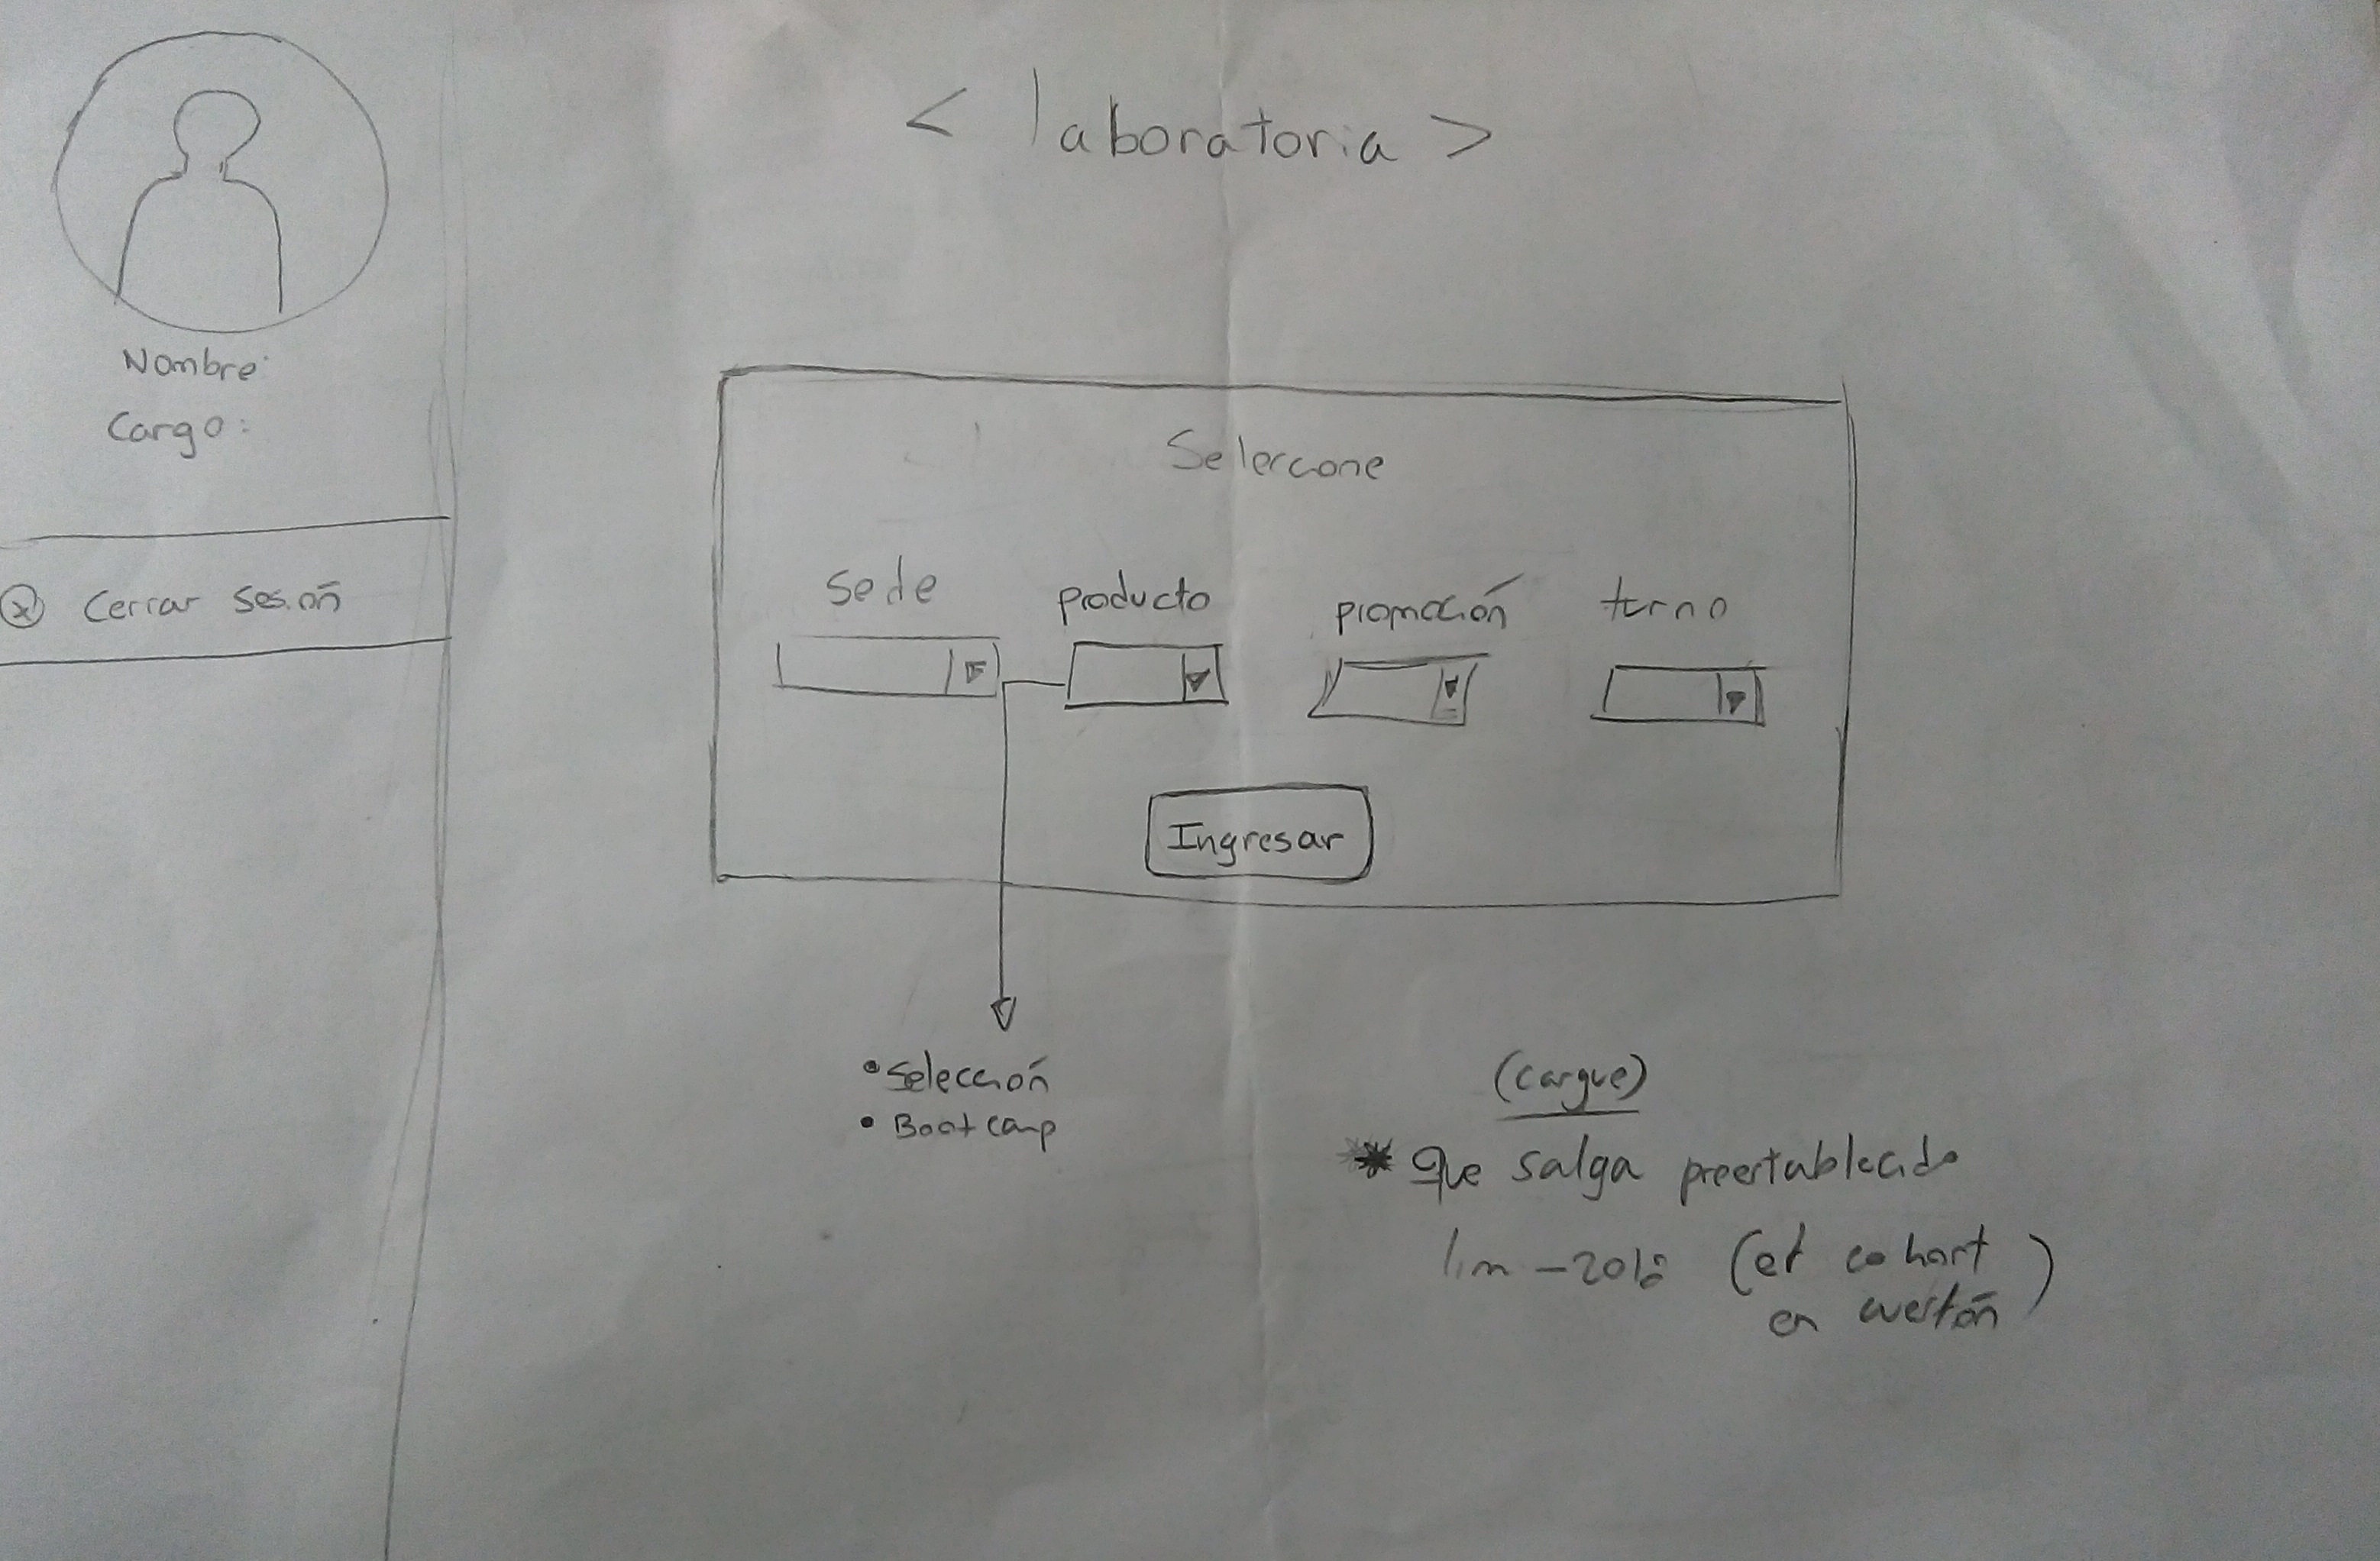 < laboratoria >
Nombre:
Cargo:
ⓧ Cerrar sesión
Seleccone
sede producto promoción turno
Ingresar
• Selección
• Bootcamp
(cargue)
* Que salga preestablecido
lim - 2018 (el cohort
en cuestión)